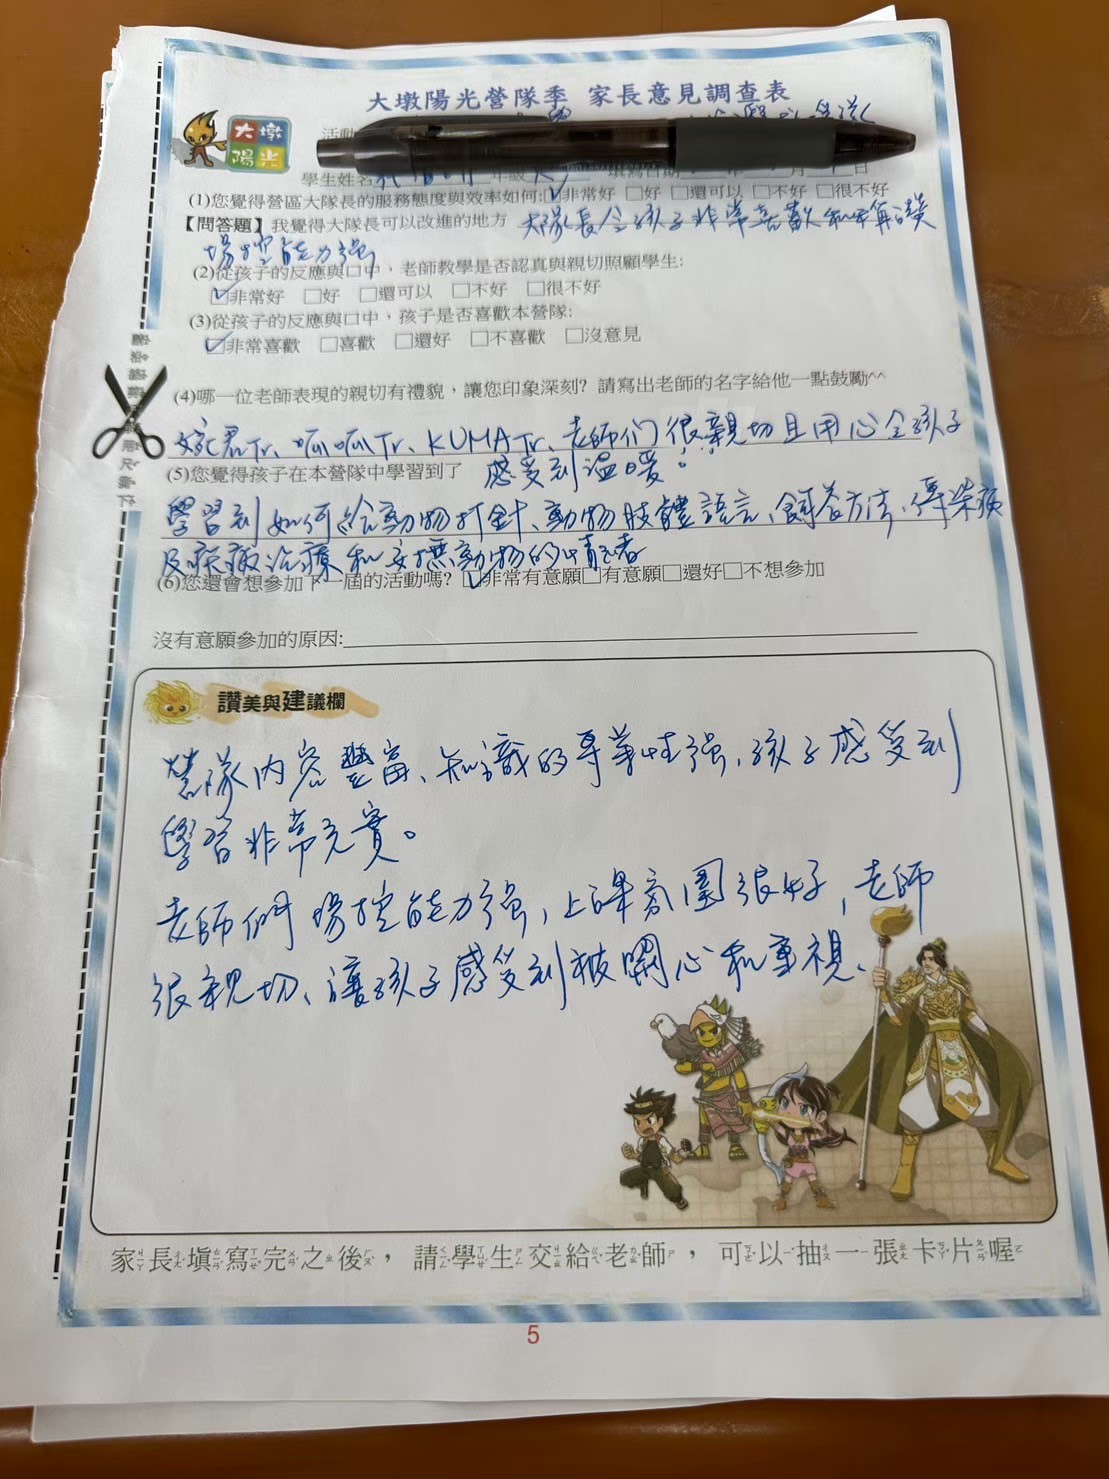 大墩陽光營隊季 家長意見調查表
大墩
陽光
活動
學生姓名 年級 填寫日期 月 日
(1)您覺得營區大隊長的服務態度與效率如何:☑非常好 □好 □還可以 □不好 □很不好
【問答題】我覺得大隊長可以改進的地方 大隊長令孩子非常喜歡和
場控能力強
(2)從孩子的反應與口中，老師教學是否認真與親切照顧學生:
☑非常好 □好 □還可以 □不好 □很不好
(3)從孩子的反應與口中，孩子是否喜歡本營隊:
☑非常喜歡 □喜歡 □還好 □不喜歡 □沒意見
(4)哪一位老師表現的親切有禮貌，讓您印象深刻? 請寫出老師的名字給他一點鼓勵^^
君Tr、呱呱Tr、KUMA Tr、老師们很親切且用心令孩子
(5)您覺得孩子在本營隊中學習到了 感受到溫暖！
學習到如何給動物打針、動物肢體語言、飼養方法、傳染病
及疾病治療和安撫動物的情緒
(6)您還會想參加下一屆的活動嗎? ☑非常有意願□有意願□還好□不想參加
沒有意願參加的原因:
讚美與建議欄
營隊內容豐富、知識的專業性強，孩子感受到
學習非常充實。
老師們場控能力強，上課氛圍很好，老師
很親切、讓孩子感受到被關心和重視、
家長填寫完之後，請學生交給老師，可以抽一張卡片喔
5